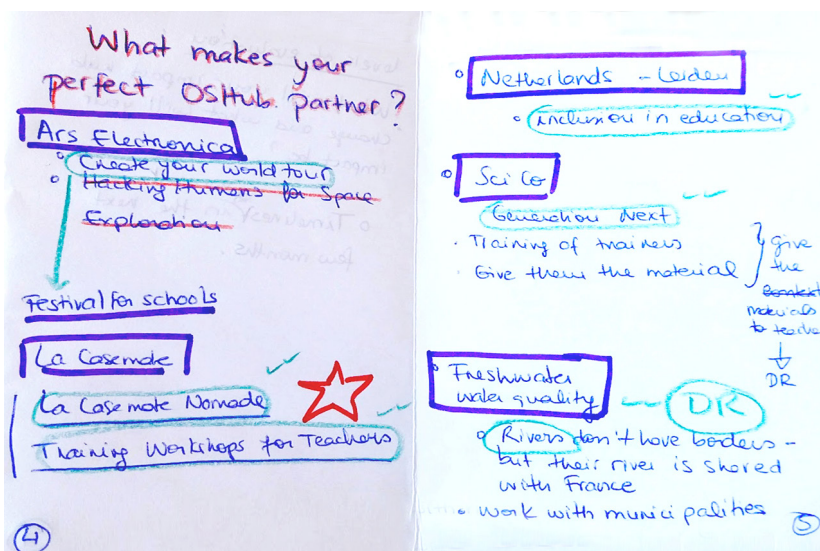 What makes your
perfect OSHub partner?
Ars Electronica
Create your world tour
Hacking Humans for Space
Exploration
Festival for schools
La Casemate
La Casemate Nomade
Training Workshops for Teachers
4
Netherlands - Leiden
Inclusion in education
SciCo
Generation Next
Training of trainers
Give them the material
give
the
materials
to teache
DR
Freshwater
water quality
DR
Rivers don't have borders -
but their river is shared
with France
work with municipalities
5